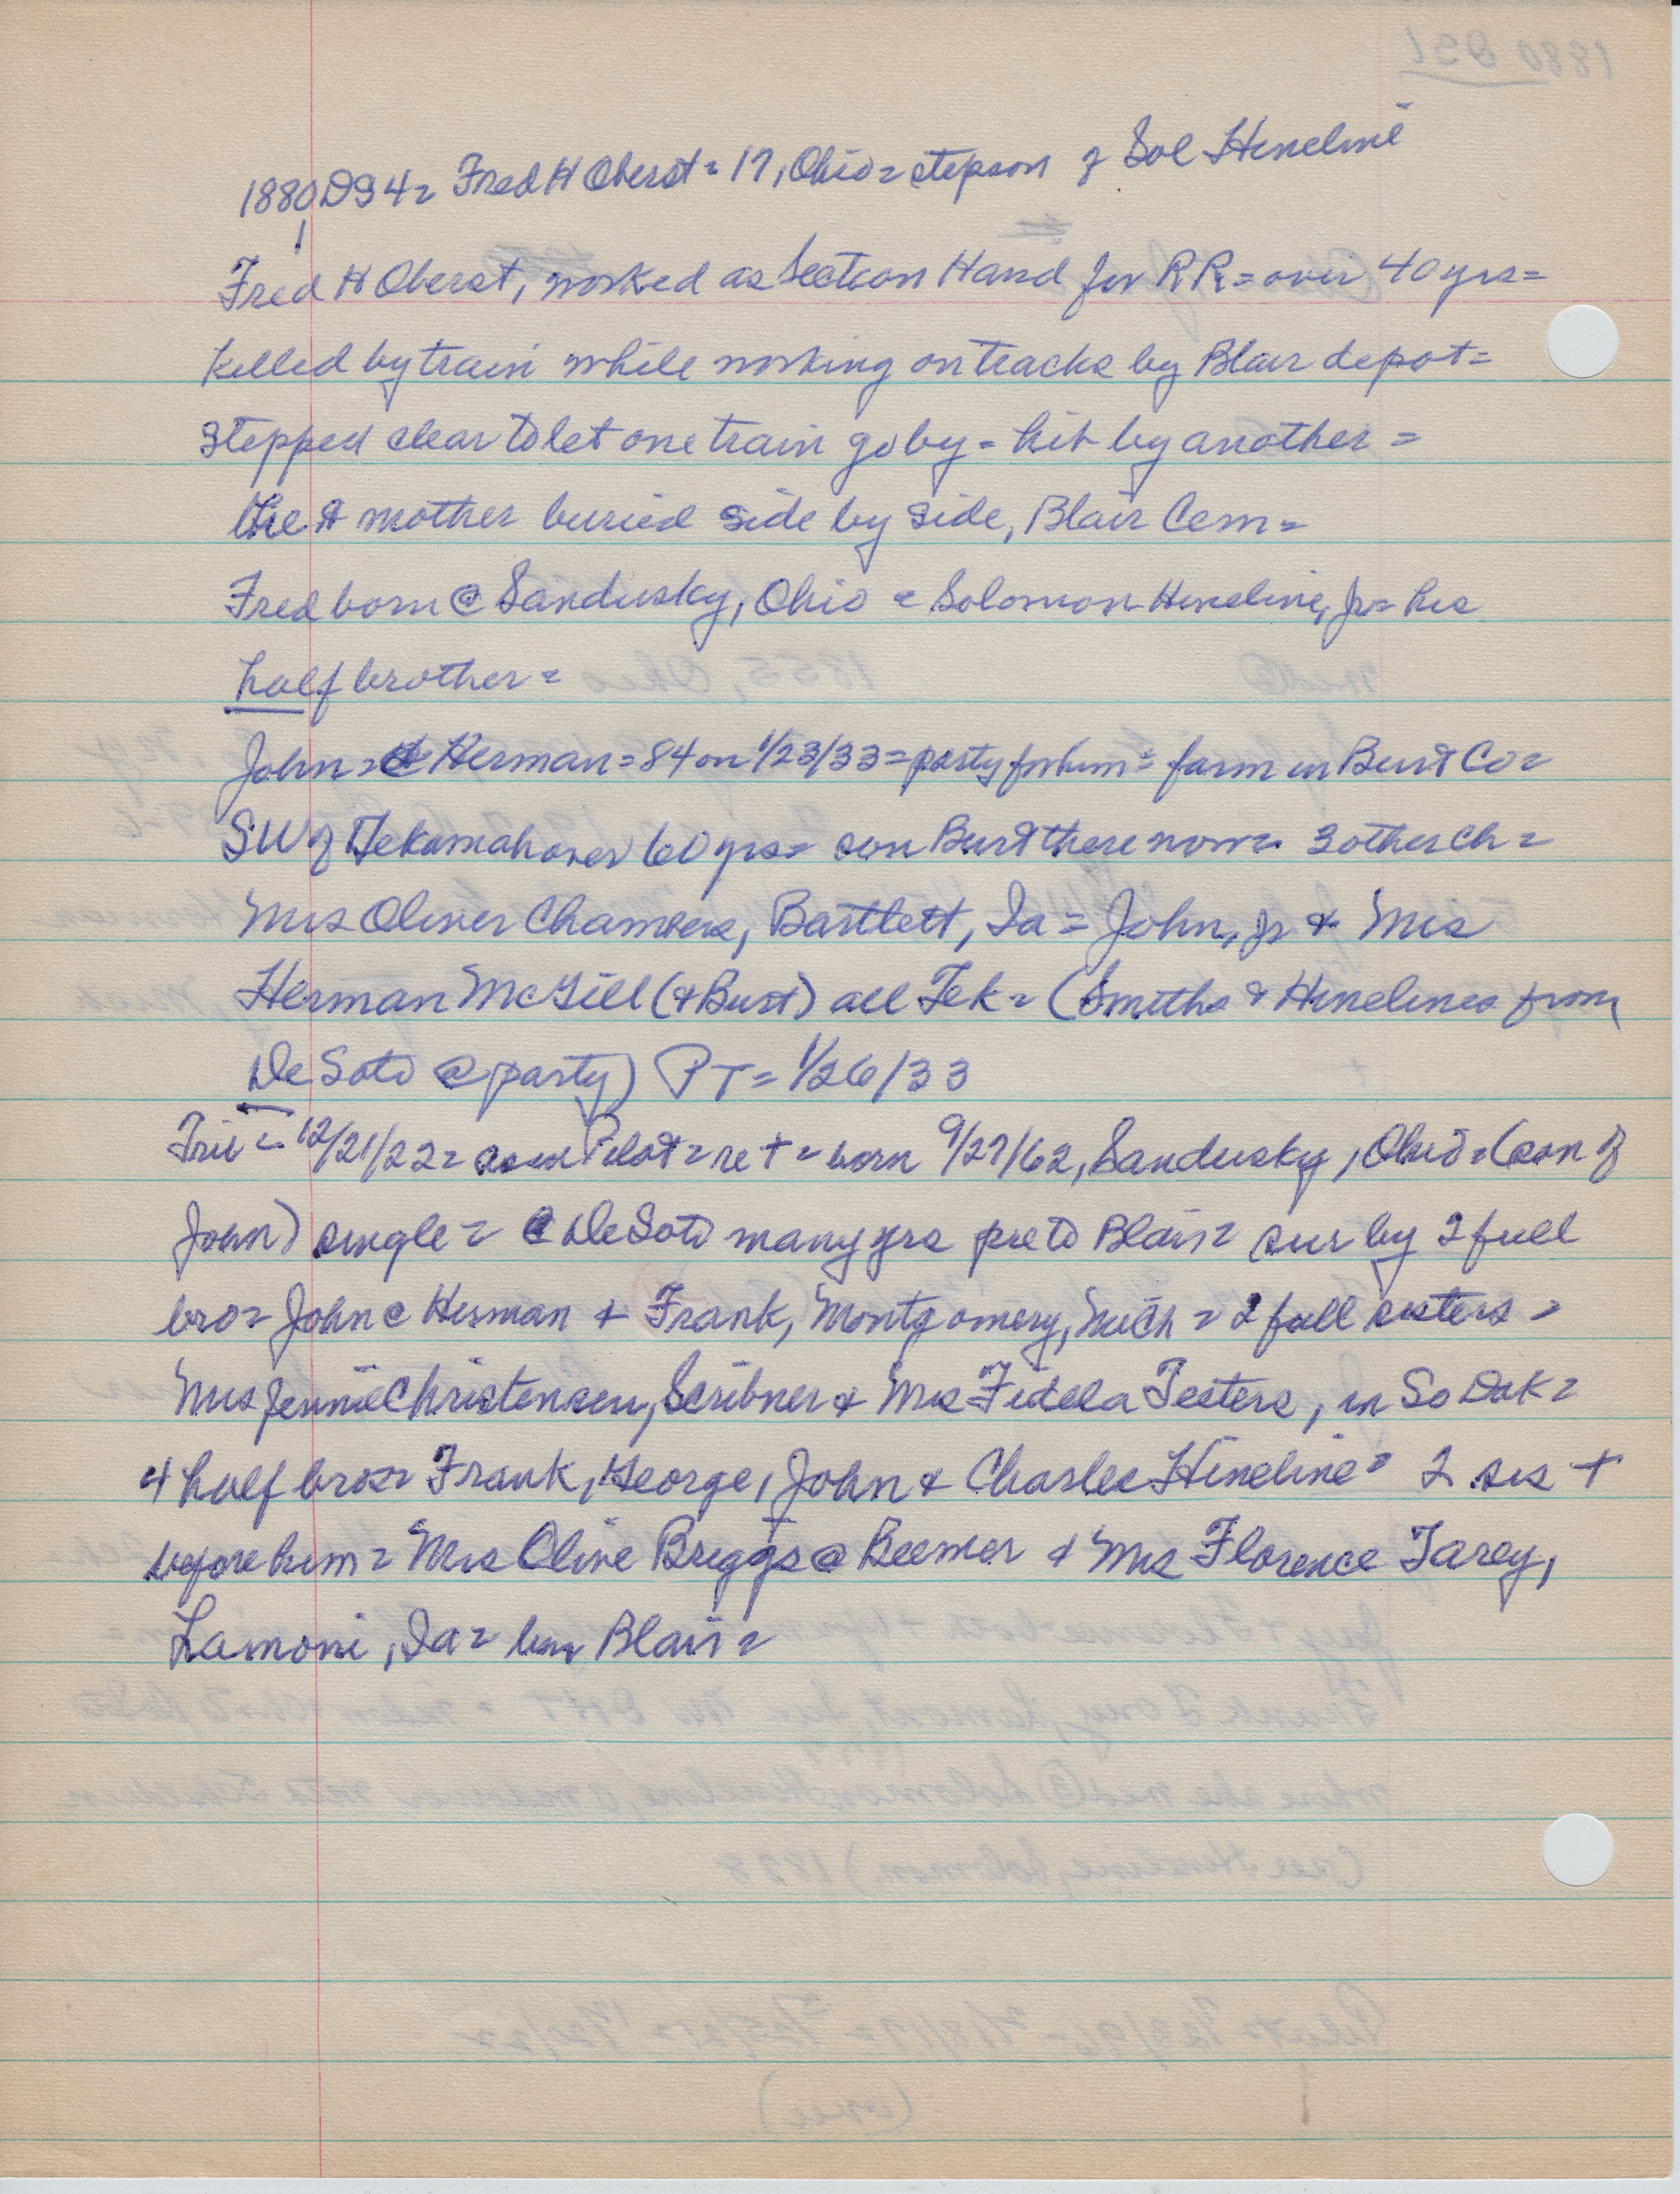 1880 DS4= Fred H Oberst= 17, Ohio= stepson of Sol Hineline
Fred H Oberst, worked as Section Hand for RR= over 40 yrs=
killed by train while working on tracks by Blair depot=
stepped clear to let one train go by= hit by another=
He & mother buried side by side, Blair Cem=
Fred born @ Sandusky, Ohio = Solomon Hineline, Jr= his
half brother=
John @ Herman= 84 on 1/23/33= party for him= farm in Burt Co=
SW of Tekamah over 60 yrs= son Burt there now= 3 other ch=
Mrs Oliver Chambers, Bartlett, Ia= John, Jr & Mrs
Herman McGill (& Burt) all Tek= (Smiths & Hinelines from
DeSoto @ party) PT= 1/26/33
12/21/22= Pilot= re + = born 9/27/62, Sandusky, Ohio= (son of
John) single= @ DeSoto many yrs pre to Blair= sur by 2 full
bro= John @ Herman & Frank, Montgomery, Mich= 2 full sisters=
Mrs Jennie Christensen, Scribner & Mrs Fidela Teeters, in So Dak=
4 half bros= Frank, George, John & Charles Hineline= 2 sis +
before him= Mrs Olive Briggs @ Beemer & Mrs Florence Tarey,
Lamoni, Ia= bur Blair=